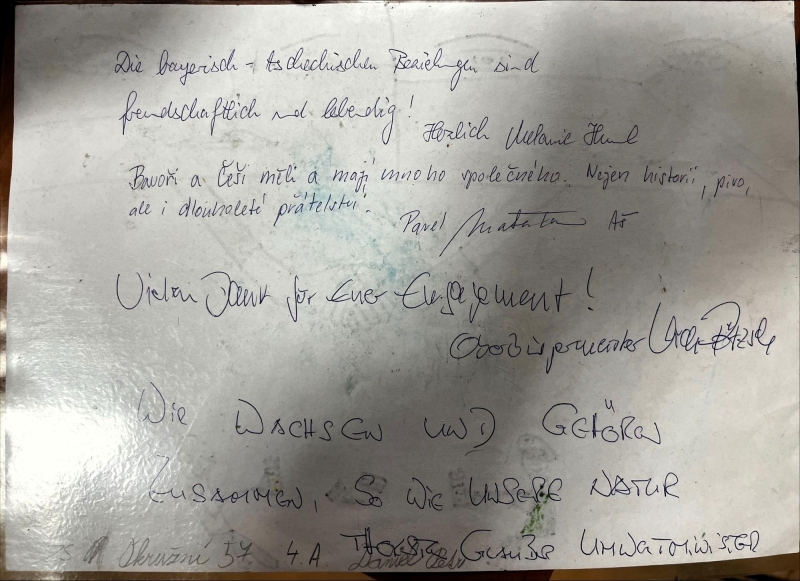 Die bayerisch-tschechischen Beziehungen sind
freundschaftlich und lebendig!
Herzlich Melanie Huml
Bavoři a Češi měli a mají mnoho společného. Nejen historii, pivo,
ale i dlouholeté přátelství.
Pavel Aš
Vielen Dank für Euer Engagement!
Oberbürgermeister
WIR WACHSEN UND GEHÖREN
ZUSAMMEN, SO WIE UNSERE NATUR
GLAUBER UMWELTMINISTER
Okružní 57 4.A Daniel